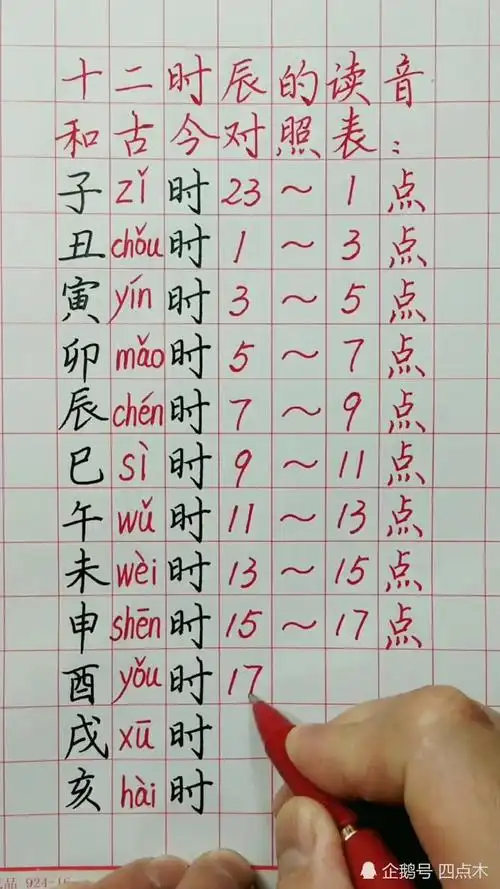 十二时辰的读音
和古今对照表：
子zǐ时23～1点
丑chǒu时1～3点
寅yín时3～5点
卯mǎo时5～7点
辰chén时7～9点
巳sì时9～11点
午wǔ时11～13点
未wèi时13～15点
申shēn时15～17点
酉yǒu时17
戌xū时
亥hài时
品 924-16
企鹅号 四点木